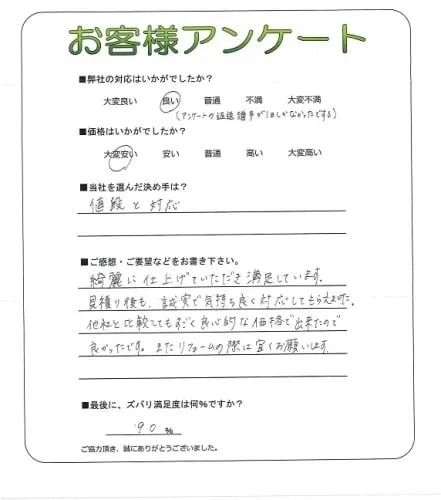 お客様アンケート
■弊社の対応はいかがでしたか?
大変良い 良い 普通 不満 大変不満
(アンケートの返送切手が1日しかなかったです)
■価格はいかがでしたか?
大変安い 安い 普通 高い 大変高い
■当社を選んだ決め手は?
値段と対応
■ご感想・ご要望などをお書き下さい。
綺麗に仕上げていただき満足しています。
見積り後も、誠実で気持ち良く対応してもらえました。
他社と比較してもすごく良心的な価格で出来たので
良かったです。またリフォームの際は宜くお願いします。
■最後に、ズバリ満足度は何%ですか?
90 %
ご協力頂き、誠にありがとうございました。